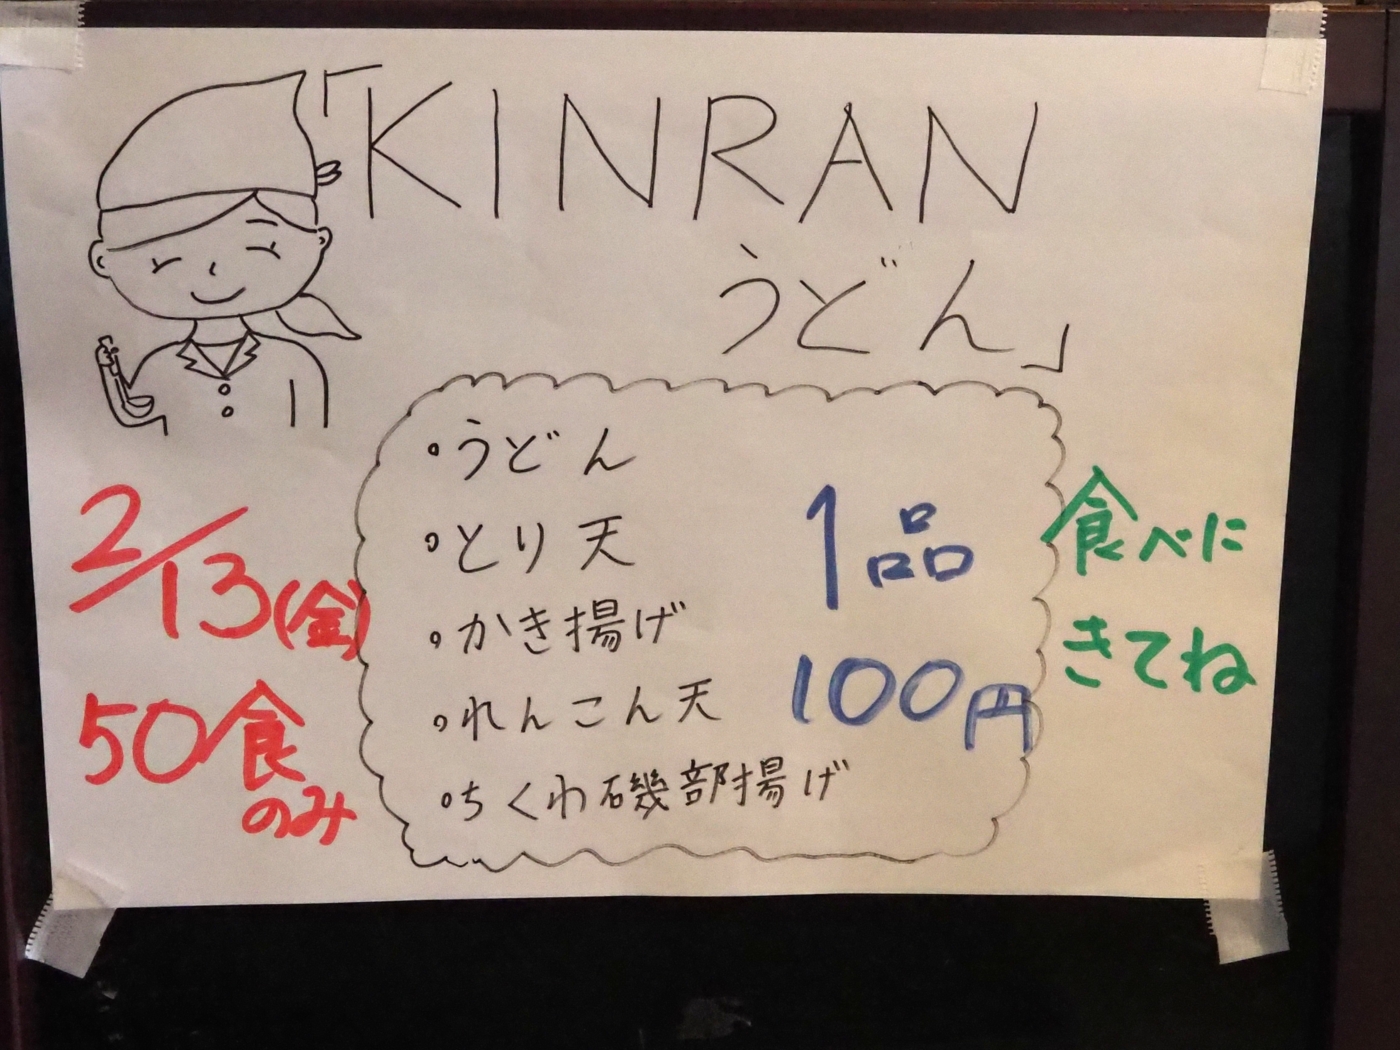 「KINRAN
うどん」
・うどん
・とり天
・かき揚げ
・れんこん天
・ちくわ磯部揚げ
1品
100円
2/13(金)
50食
のみ
食べに
きてね